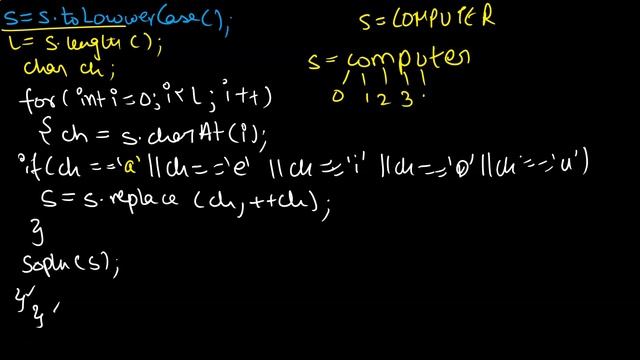 s=s.toLowwerCase();
L= s.length();
char ch;
for(int i=0; i<L; i++)
{ ch = s.charAt(i);
if(ch=='a' ||ch=='e' ||ch=='i' ||ch=='o' ||ch=='u')
s=s.replace (ch,++ch);
}
Sopln(s);
}
}
S=COMPUTER
s=computer
0 1 2 3 .